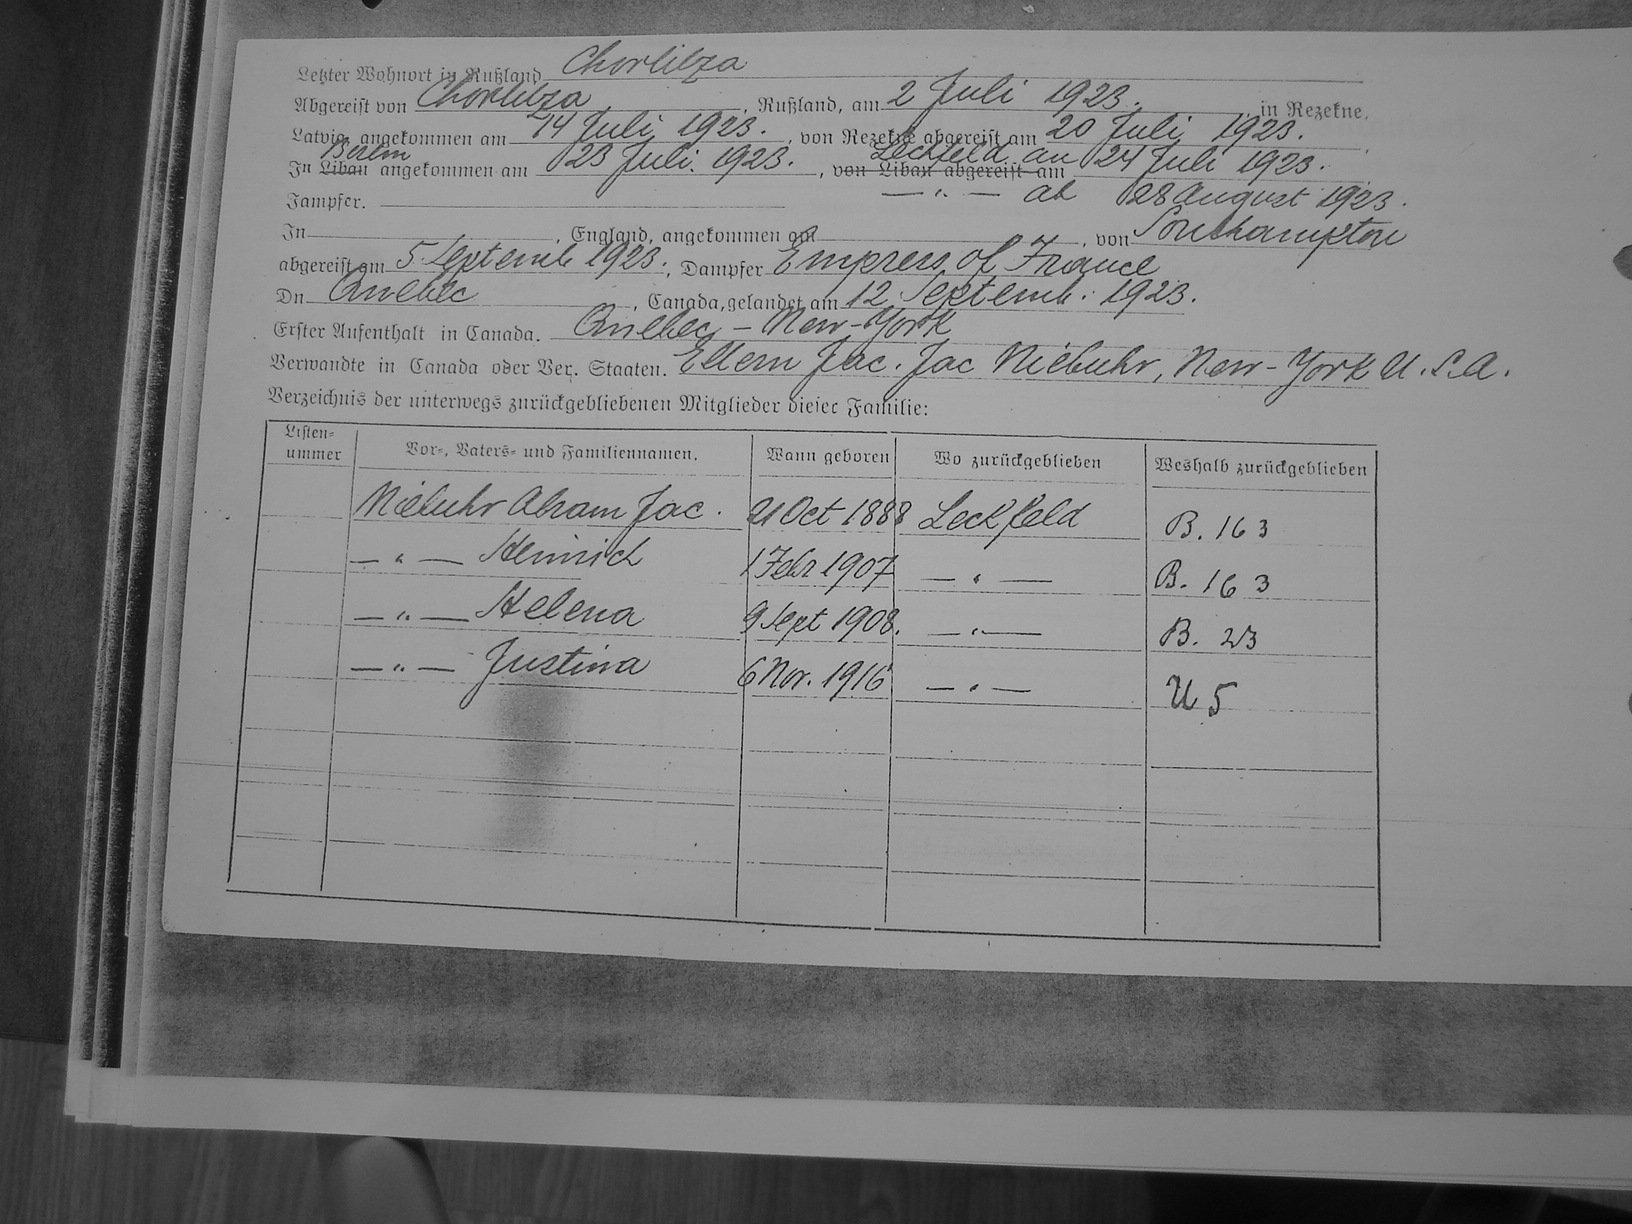 Letzter Wohnort in Rußland Chorlitza
Abgereist von Chorlitza, Rußland, am 2 Juli 1923. in Rezekne,
Latvia, angekommen am 14 Juli 1923., von Rezekne abgereist am 20 Juli 1923.
Berlin Lechfeld an
In Libau angekommen am 23 Juli. 1923., von Libau abgereist am 24 Juli 1923.
— " — ab 28 August 1923.
Jampfer.
In , England, angekommen am , von Southampton
abgereist am 5 Septemb 1923., Dampfer Empress of France
Dn Quebec, Canada, gelandet am 12 Septemb. 1923.
Erster Aufenthalt in Canada. Quebec – New-York
Verwandte in Canada oder Ver. Staaten. Eltern Jac. Jac Niebuhr, New-York U.S.A.
Verzeichnis der unterwegs zurückgebliebenen Mitglieder dieser Familie:
Listen-
ummer Vor-, Vaters- und Familiennamen. Wann geboren Wo zurückgeblieben Weshalb zurückgeblieben
Niebuhr Abram Jac. 21 Oct 1888 Leckfeld B. 163
— " — Heinrich 1 Febr 1907 — " — B. 163
— " — Helena 9 Sept 1908. — " — B. 23
— " — Justina 6 Nov. 1916 — " — U 5